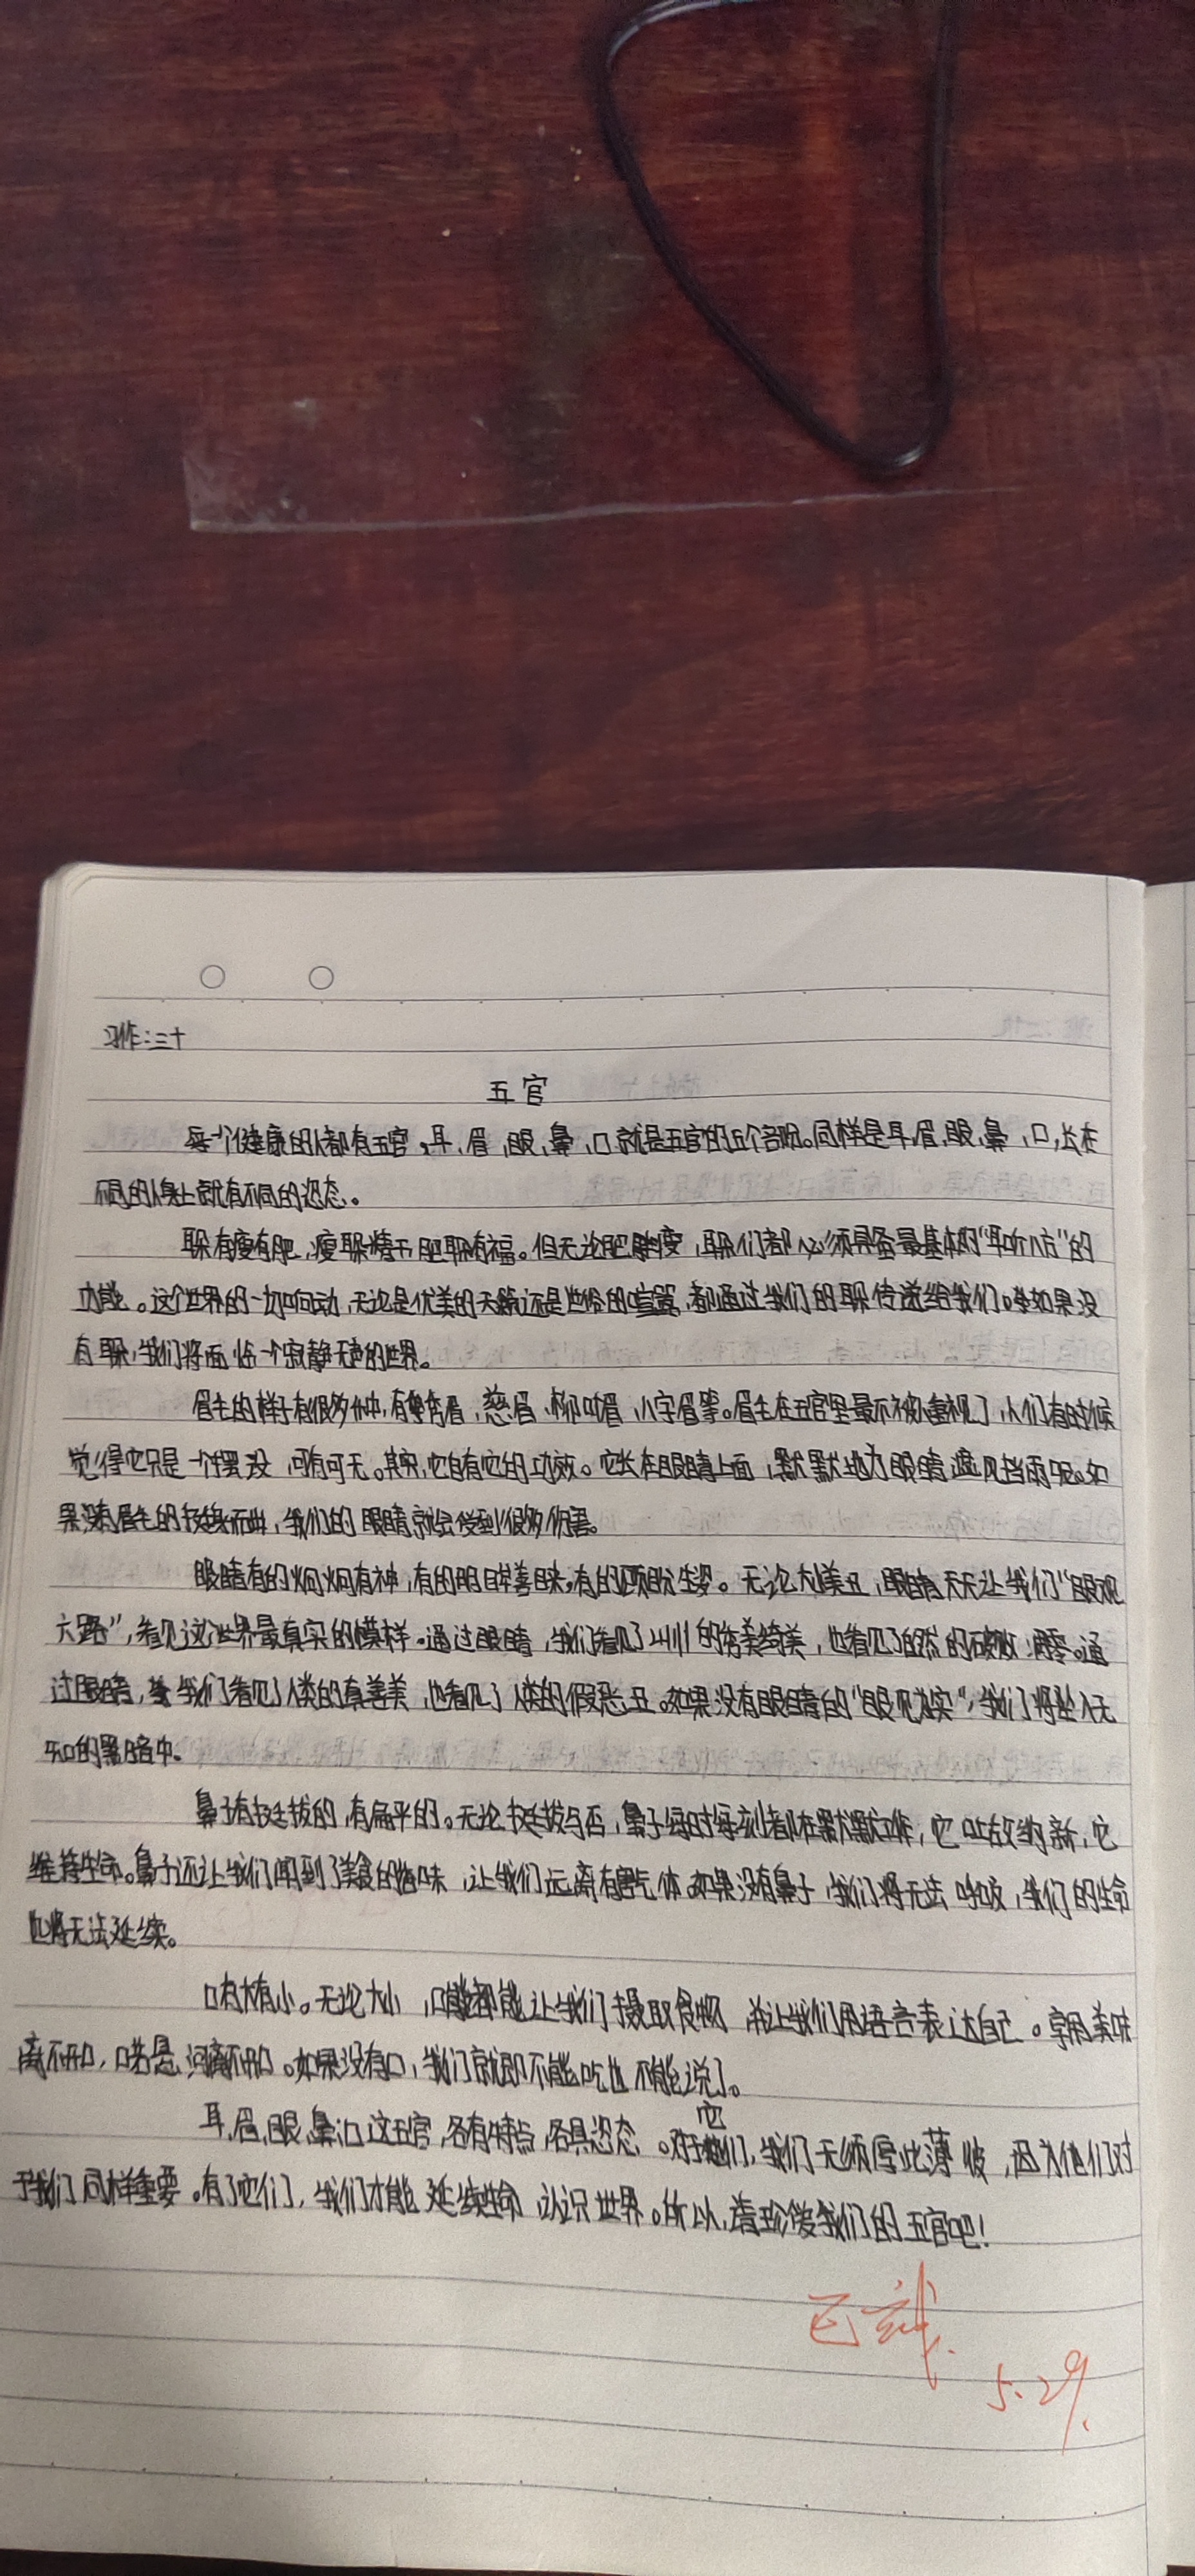 习作:三十
五官
每一个健康的人都有五官,耳、眉、眼、鼻、口就是五官的五个名字。同样是耳、眉、眼、鼻、口,长在
不同的人身上就有不同的姿态。
耳朵有瘦有肥,瘦耳朵精干,肥耳朵有福。但无论肥胖瘦,耳朵们都必须具备最基本的“耳听八方”的
功能。这个世界的一切响动,无论是优美的天籁还是世俗的喧嚣,都通过我们的耳朵传送给我们。如果没
有耳朵,我们将面临一个寂静无声的世界。
眉毛的样子有很多种,有眉、慈眉、柳叶眉、八字眉等。眉毛在五官里最不被人重视了,人们有时候
觉得它只是一个摆设,可有可无。其实,它自有它的功效。它长在眼睛上面,默默地为眼睛遮风挡雨呢。如
果没有眉毛的挺身而出,我们的眼睛就会受到很多伤害。
眼睛有的炯炯有神,有的明眸善睐,有的顾盼生姿。无论大小美丑,眼睛天天让我们“眼观
六路”,看见这个世界最真实的模样。通过眼睛,我们看见了山川的秀美绮美,也看见了自然的破败凋零。通
过眼睛,我们看见了人类的真善美,也看见了人类的假恶丑。如果没有眼睛的“眼见为实”,我们将坠入无
知的黑暗中。
鼻子有挺拔的,有扁平的。无论挺拔与否,鼻子每时每刻都在默默工作,它吐故纳新,它
维持生命。鼻子还让我们闻到了美食的香味,让我们远离有害气体。如果没有鼻子,我们将无法呼吸,我们的生命
也将无法延续。
口有大有小。无论大小,口都能让我们摄取食物,并让我们用语言表达自己。享用美味
离不开口,口若悬河离不开口。如果没有口,我们就即不能吃也不能说了。
耳、眉、眼、鼻、口这五官,各有特点,各具姿态。对于它们,我们无须厚此薄彼,因为他们对
于我们同样重要。有了它们,我们才能延续生命、认识世界。所以,请珍爱我们的五官吧!
已就.
5.29.